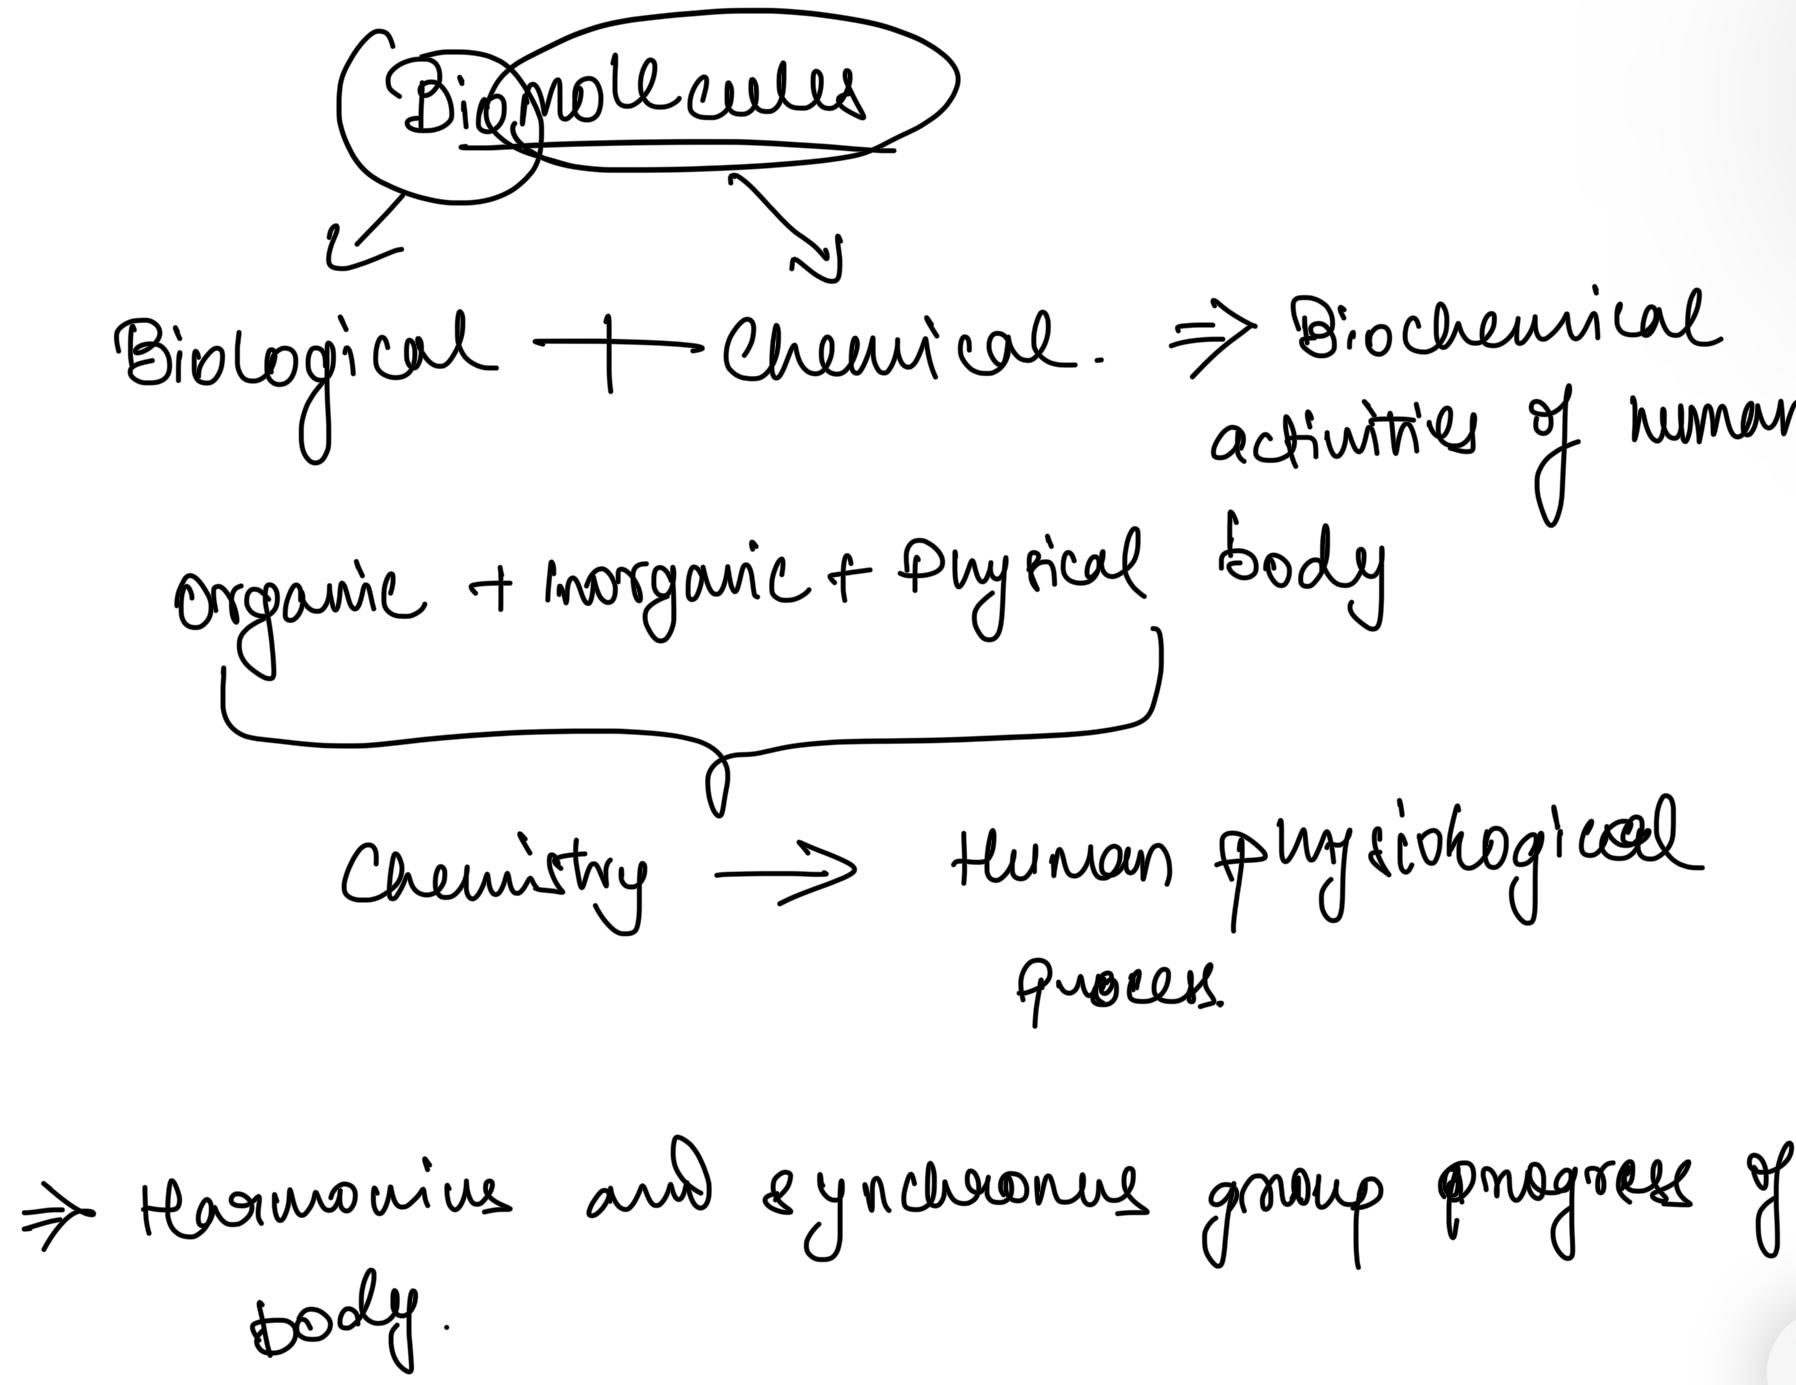 Biomolecules
Biological + Chemical. ⇒ Biochemical
activities of human
Organic + Inorganic + Physical body
Chemistry → Human physiological
process.
⇒ Harmonius and synchronus group progress of
body.